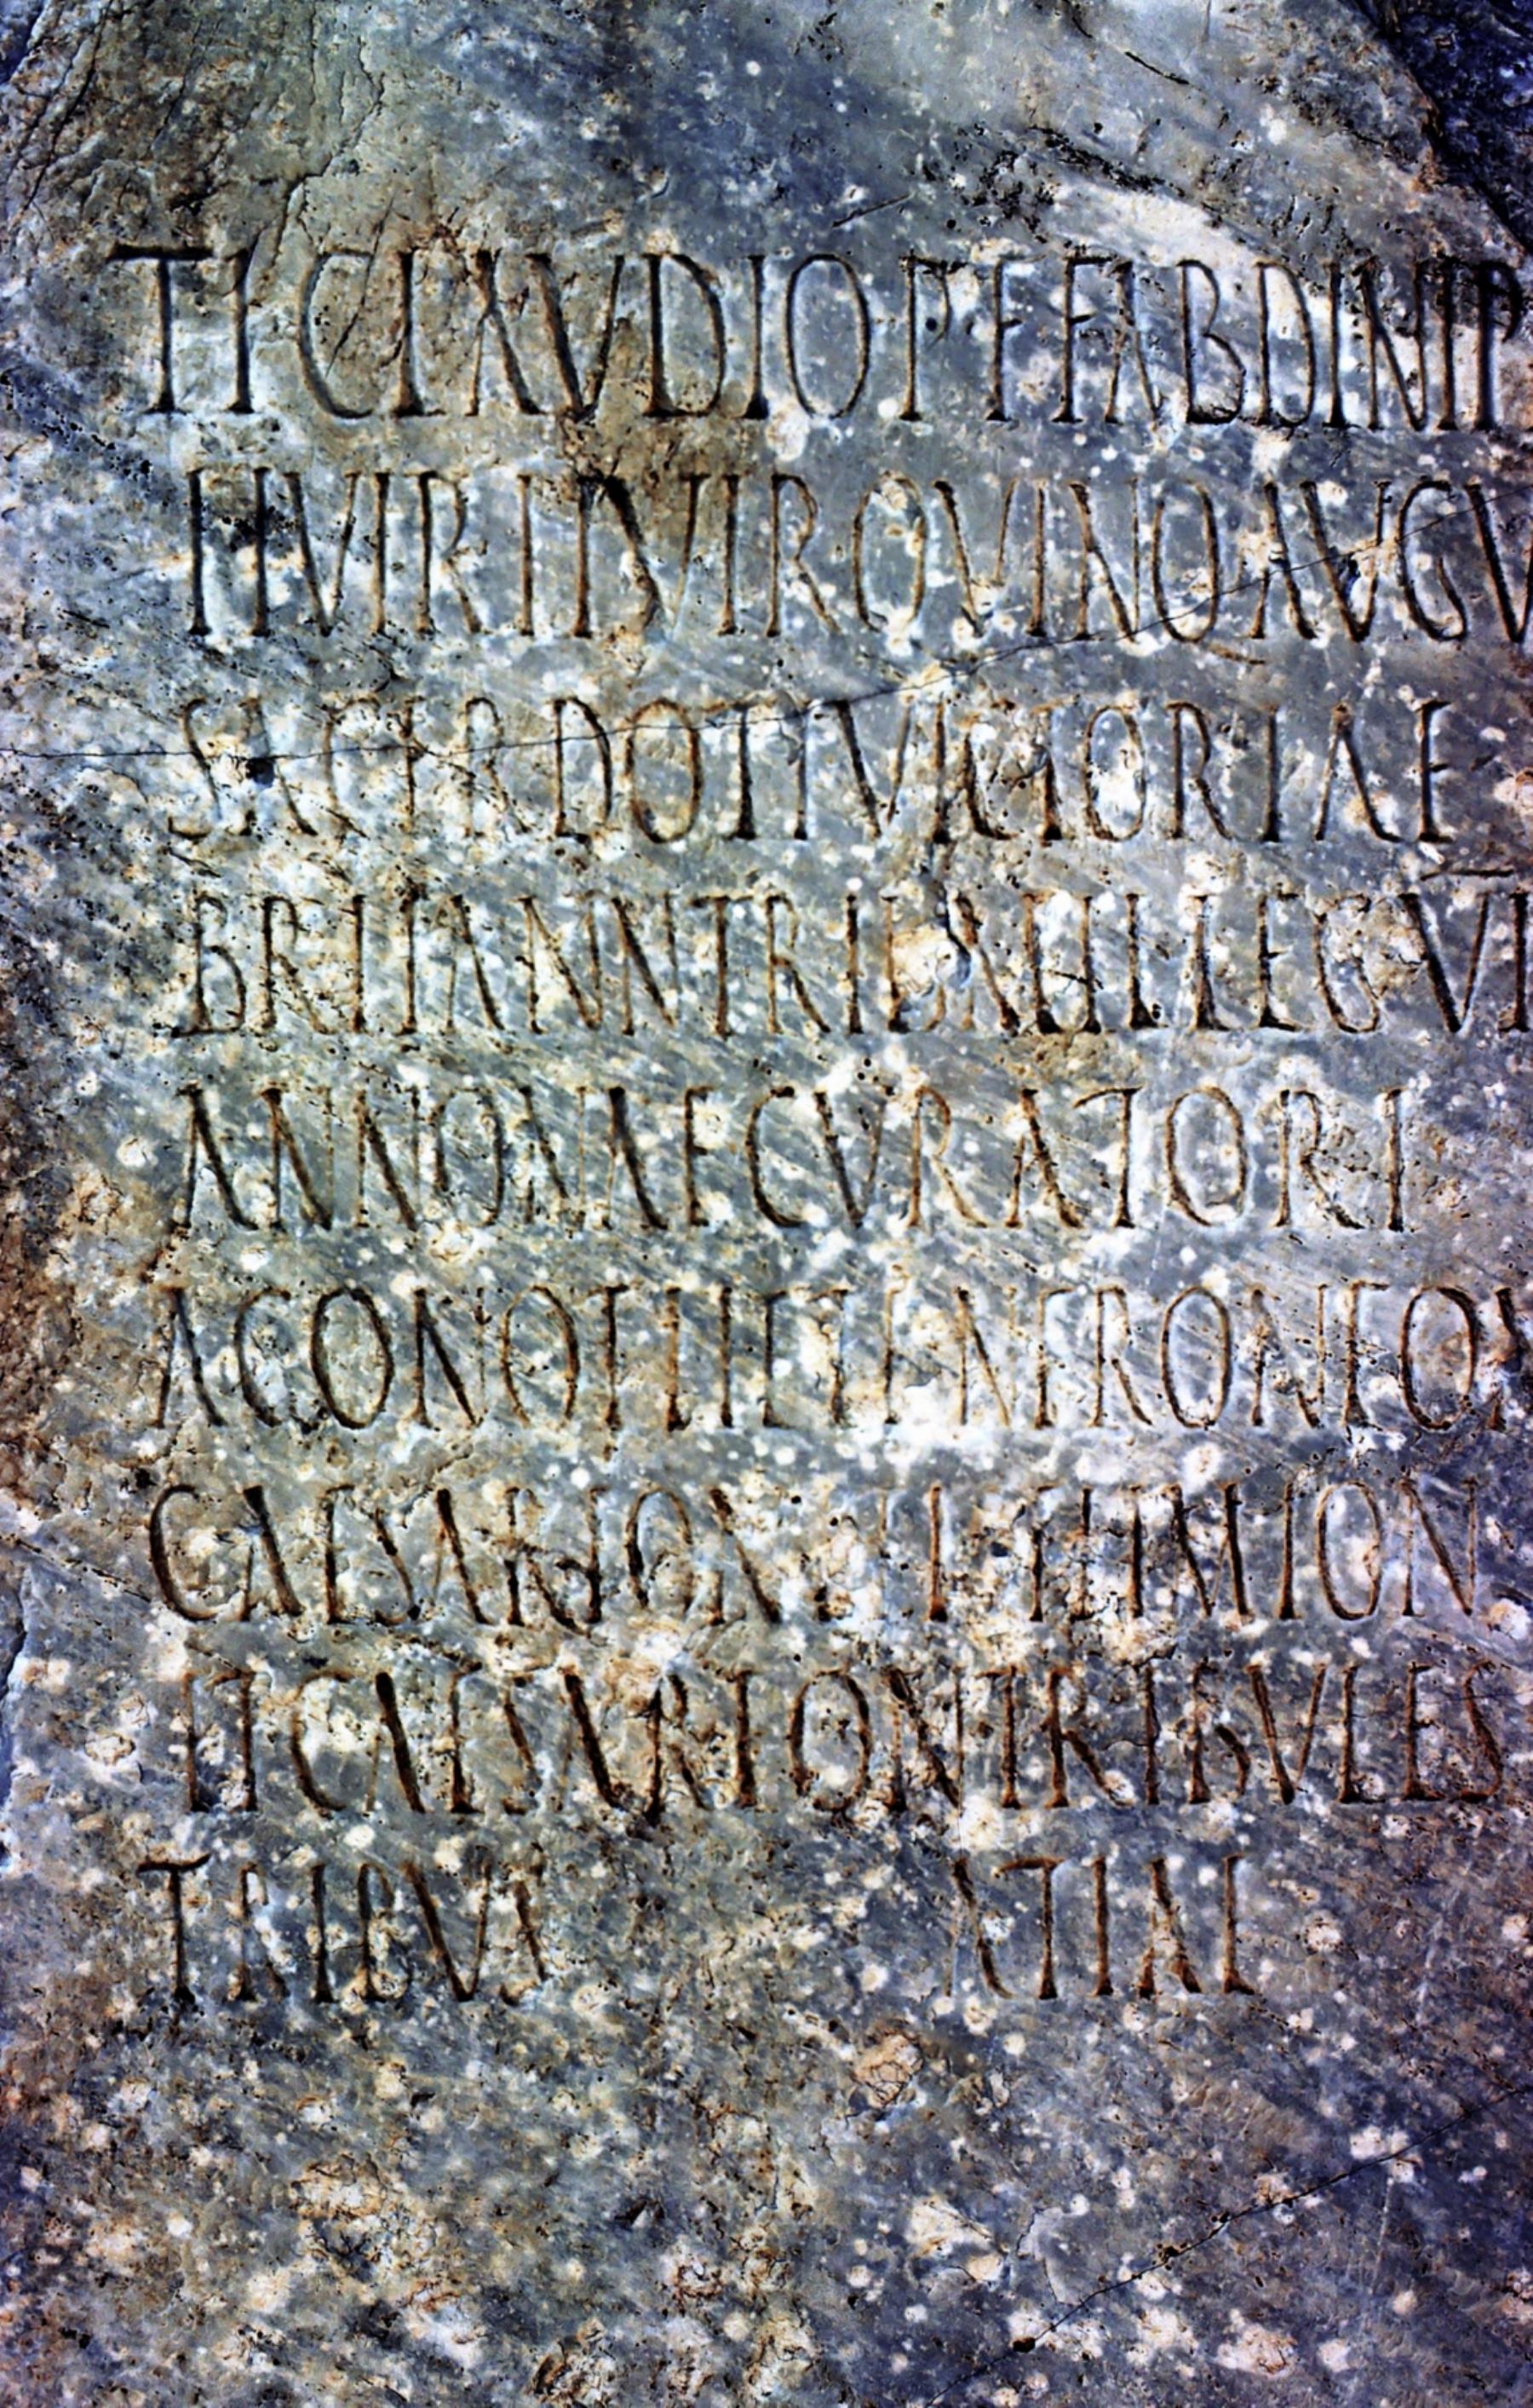 TI CLAVDIO P F FAB DINIP
II VIR II VIR QVINQ AVGV
SACERDOTI VICTORIAE
BRITANN TRIB MIL LEG VI
ANNONAE CVRATORI
AGONOTHETE NERONEON
CAESAREON ET ISTHMION
TI CAESAREON TRIBVLES
TRIBVS